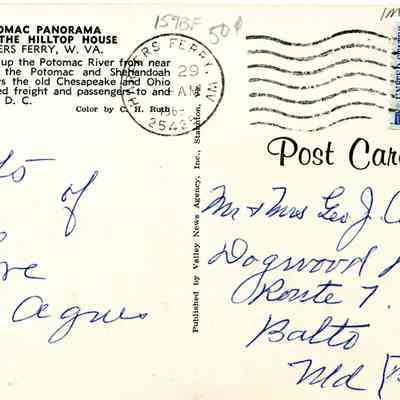 OMAC PANORAMA
THE HILLTOP HOUSE
ERS FERRY, W. VA.
up the Potomac River from near
the Potomac and Shenandoah
s the old Chesapeake and Ohio
ed freight and passengers to and
D. C.
Color by C. H. Ruth
159BF
50¢
HARPERS FERRY, WV
29
AM
25425
Published by Valley News Agency, Inc., Staunton, Va.
Post Car
ts of
ve
Agnes
Mr & Mrs Geo J.
Dogwood
Route 7
Balto
Md